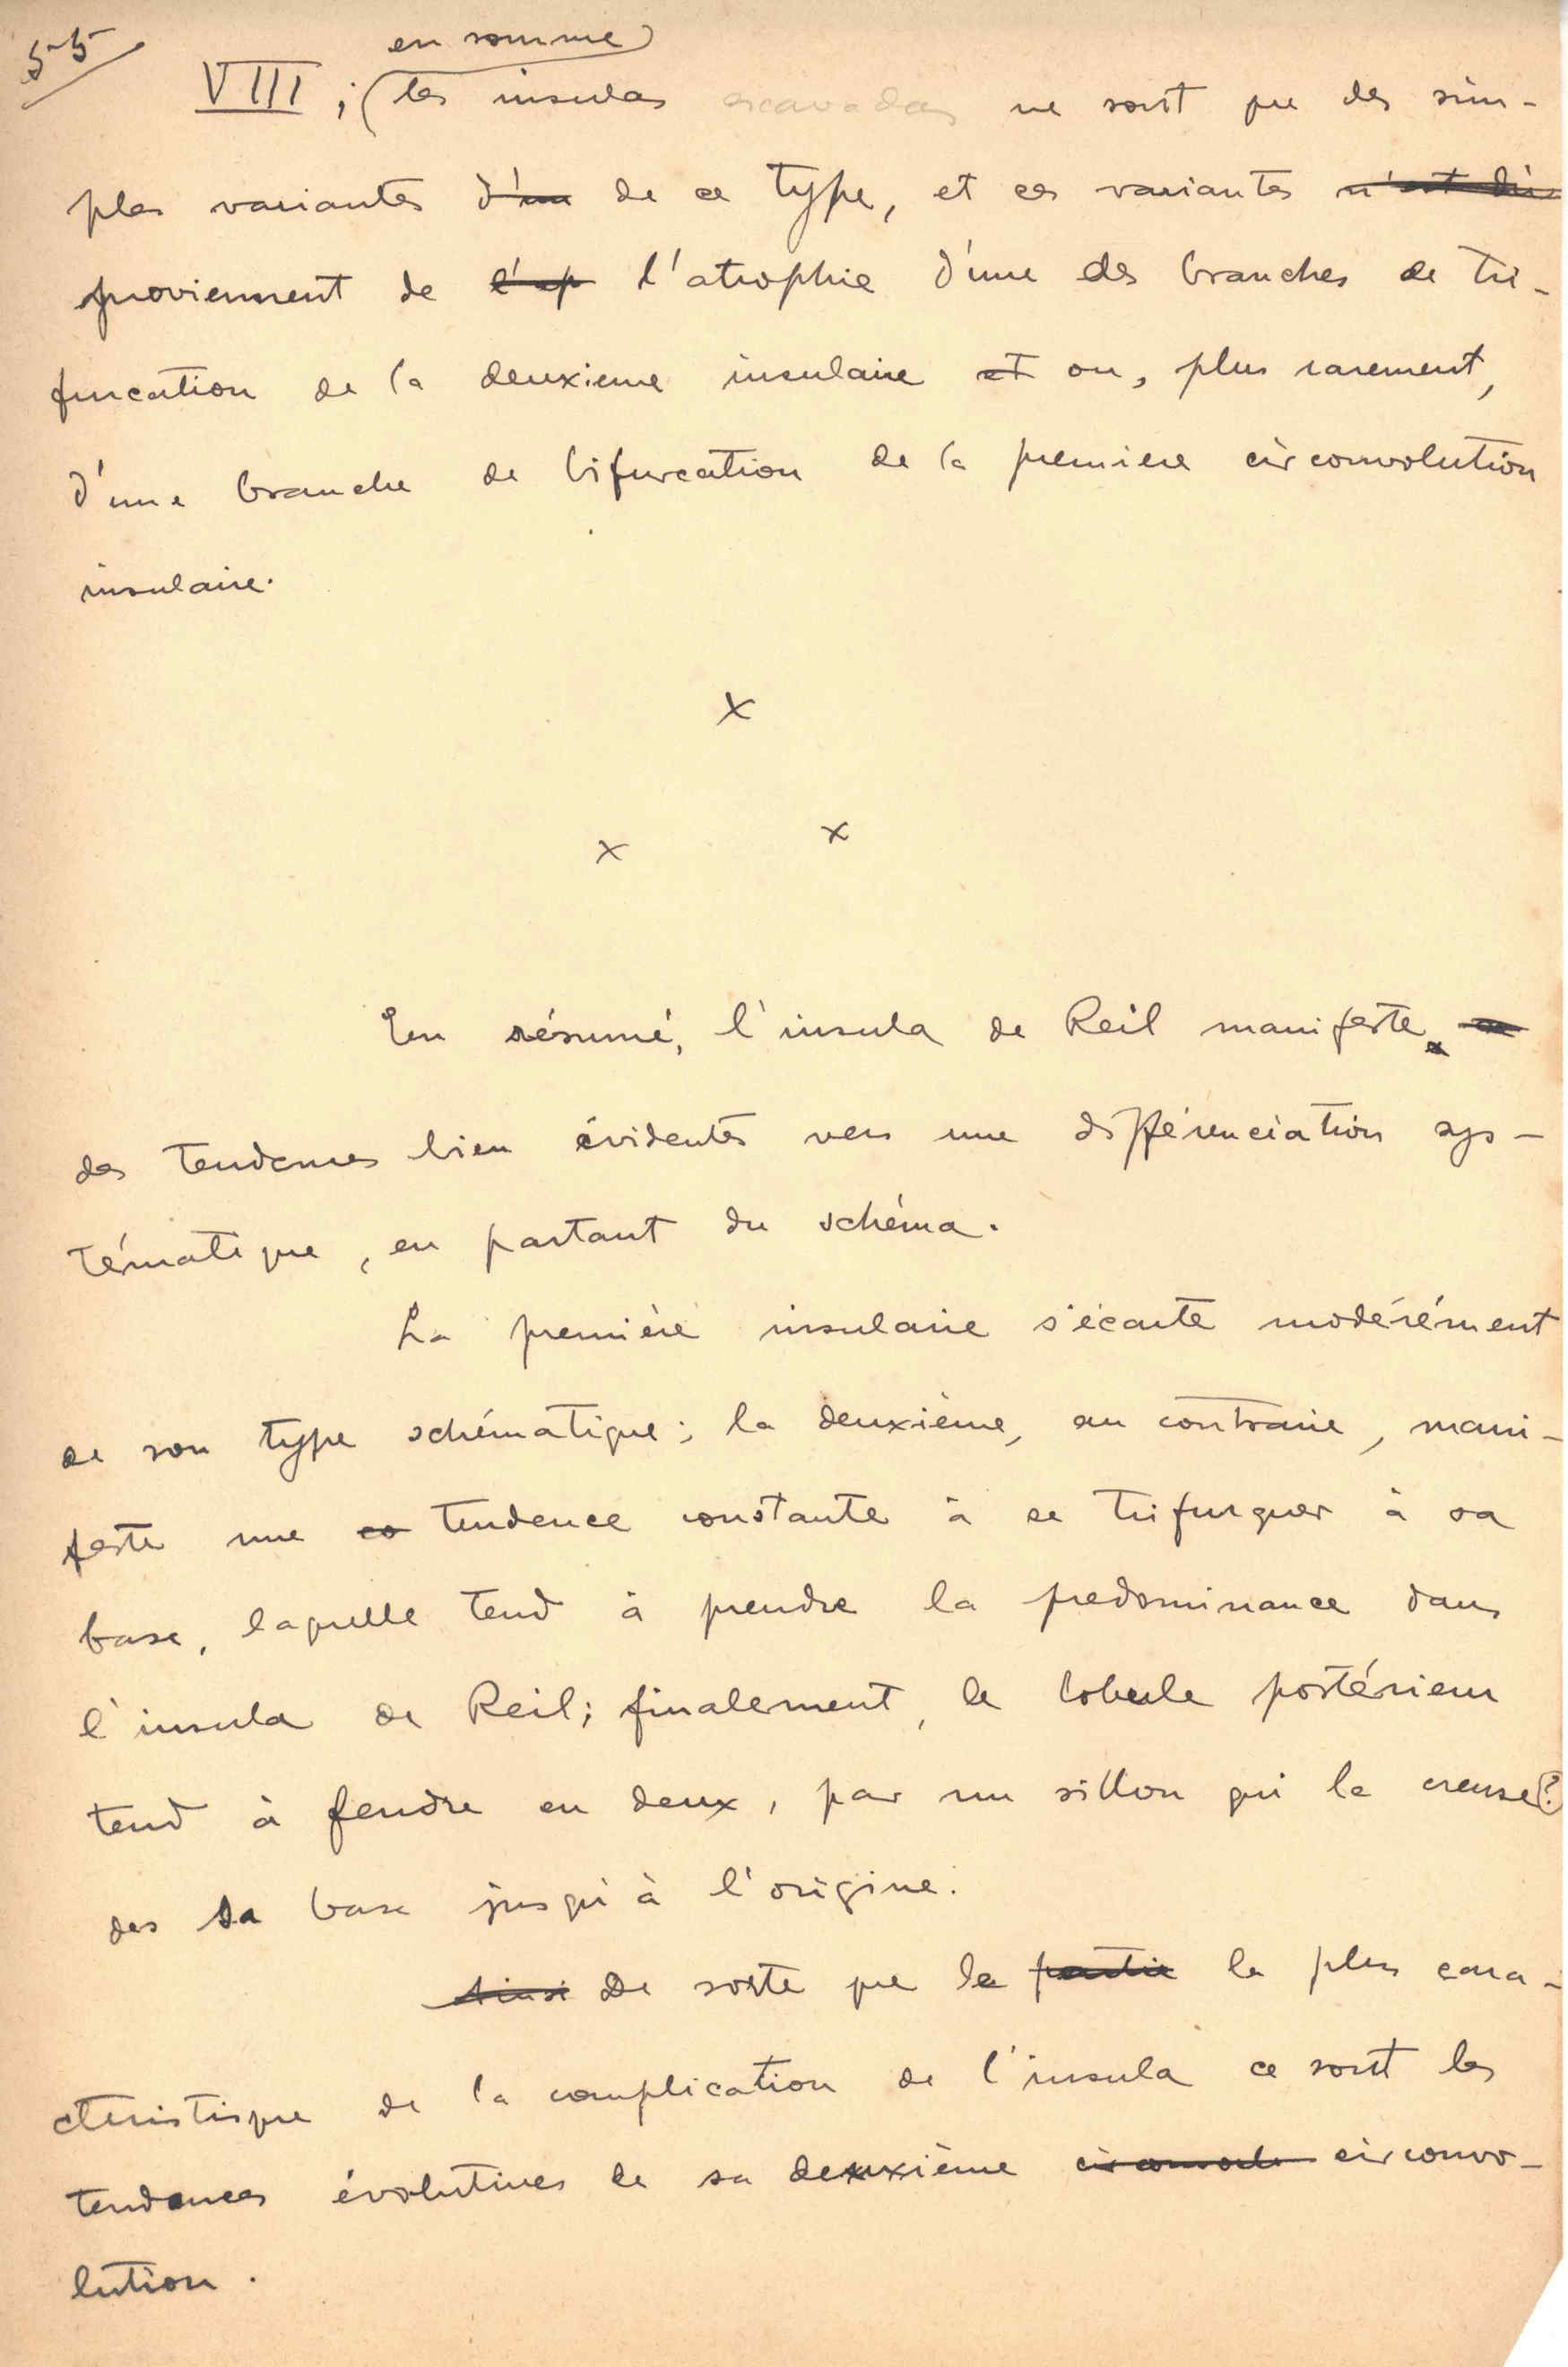 55
en somme
VIII ; (les insulas escavadas ne sont que des sim-
ples variantes d'un de ce type, et ces variantes n'est dû
proviennent de l'ap l'atrophie d'une des branches de tri-
furcation de la deuxieme insulaire et ou, plus rarement,
d'une branche de bifurcation de la premiere circonvolution
insulaire.
x
x x
En résumé, l'insula de Reil manifeste
des tendences bien évidentes vers une différenciation sys-
tématique, en partant du schéma.
La première insulaire s'écarte modérément
de son type schématique; la deuxième, au contraire, mani-
feste une co tendence constante à se trifurquer à sa
base, laquelle tend à prendre la predominance dans
l'insula de Reil; finalement, le lobule postérieur
tend à fendre en deux, par un sillon qui le creuse(?)
des sa base jusqu'à l'origine.
Ainsi De sorte que le partie le plus cara-
ctéristique de la complication de l'insula ce sont les
tendances évolutives de sa deuxième circonvolu circonvo-
lution.